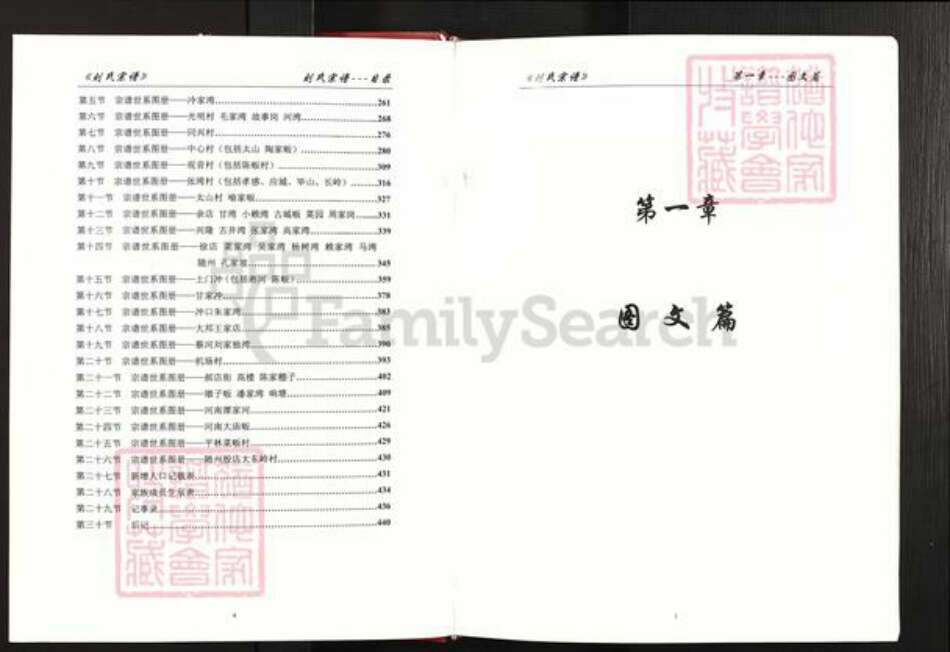 《刘氏宗谱》
刘氏宗谱---目录
第五节 宗谱世系图册——冷家湾 261
第六节 宗谱世系图册——光明村 毛家湾 故事岗 河湾 268
第七节 宗谱世系图册——同兴村 276
第八节 宗谱世系图册——中心村（包括太山 陶家畈） 280
第九节 宗谱世系图册——观音村（包括陈畈村） 309
第十节 宗谱世系图册——张湾村（包括孝感、应城、毕山、长岭） 316
第十一节 宗谱世系图册——太山村 喻家畈 327
第十二节 宗谱世系图册——余店 甘湾 小赖湾 古城畈 菜园 周家岗 331
第十三节 宗谱世系图册——兴隆 古井湾 张家湾 高家湾 339
第十四节 宗谱世系图册——徐店 栗家湾 吴家湾 杨树湾 赖家湾 马湾
随州 孔家坡 345
第十五节 宗谱世系图册——土门冲（包括 河 陈畈） 359
第十六节 宗谱世系图册——甘家冲 378
第十七节 宗谱世系图册——冲口朱家湾 383
第十八节 宗谱世系图册——大邦王家店 385
第十九节 宗谱世系图册——蔡河刘家 湾 390
第二十节 宗谱世系图册——机场村 393
第二十一节 宗谱世系图册——郝店街 高楼 陈家棚子 402
第二十二节 宗谱世系图册——墩子畈 潘家湾 响塘 409
第二十三节 宗谱世系图册——河南谭家河 421
第二十四节 宗谱世系图册——河南大庙畈 426
第二十五节 宗谱世系图册——平林栗畈村 429
第二十六节 宗谱世系图册——随州殷店大东岭村 430
第二十七节 新增人口记载表 431
第二十八节 家族成员生辰表 434
第二十九节 记事录 436
第三十节 后记 440
4
《刘氏宗谱》
第一章---图文篇
第一章
图文篇
1
FamilySearch